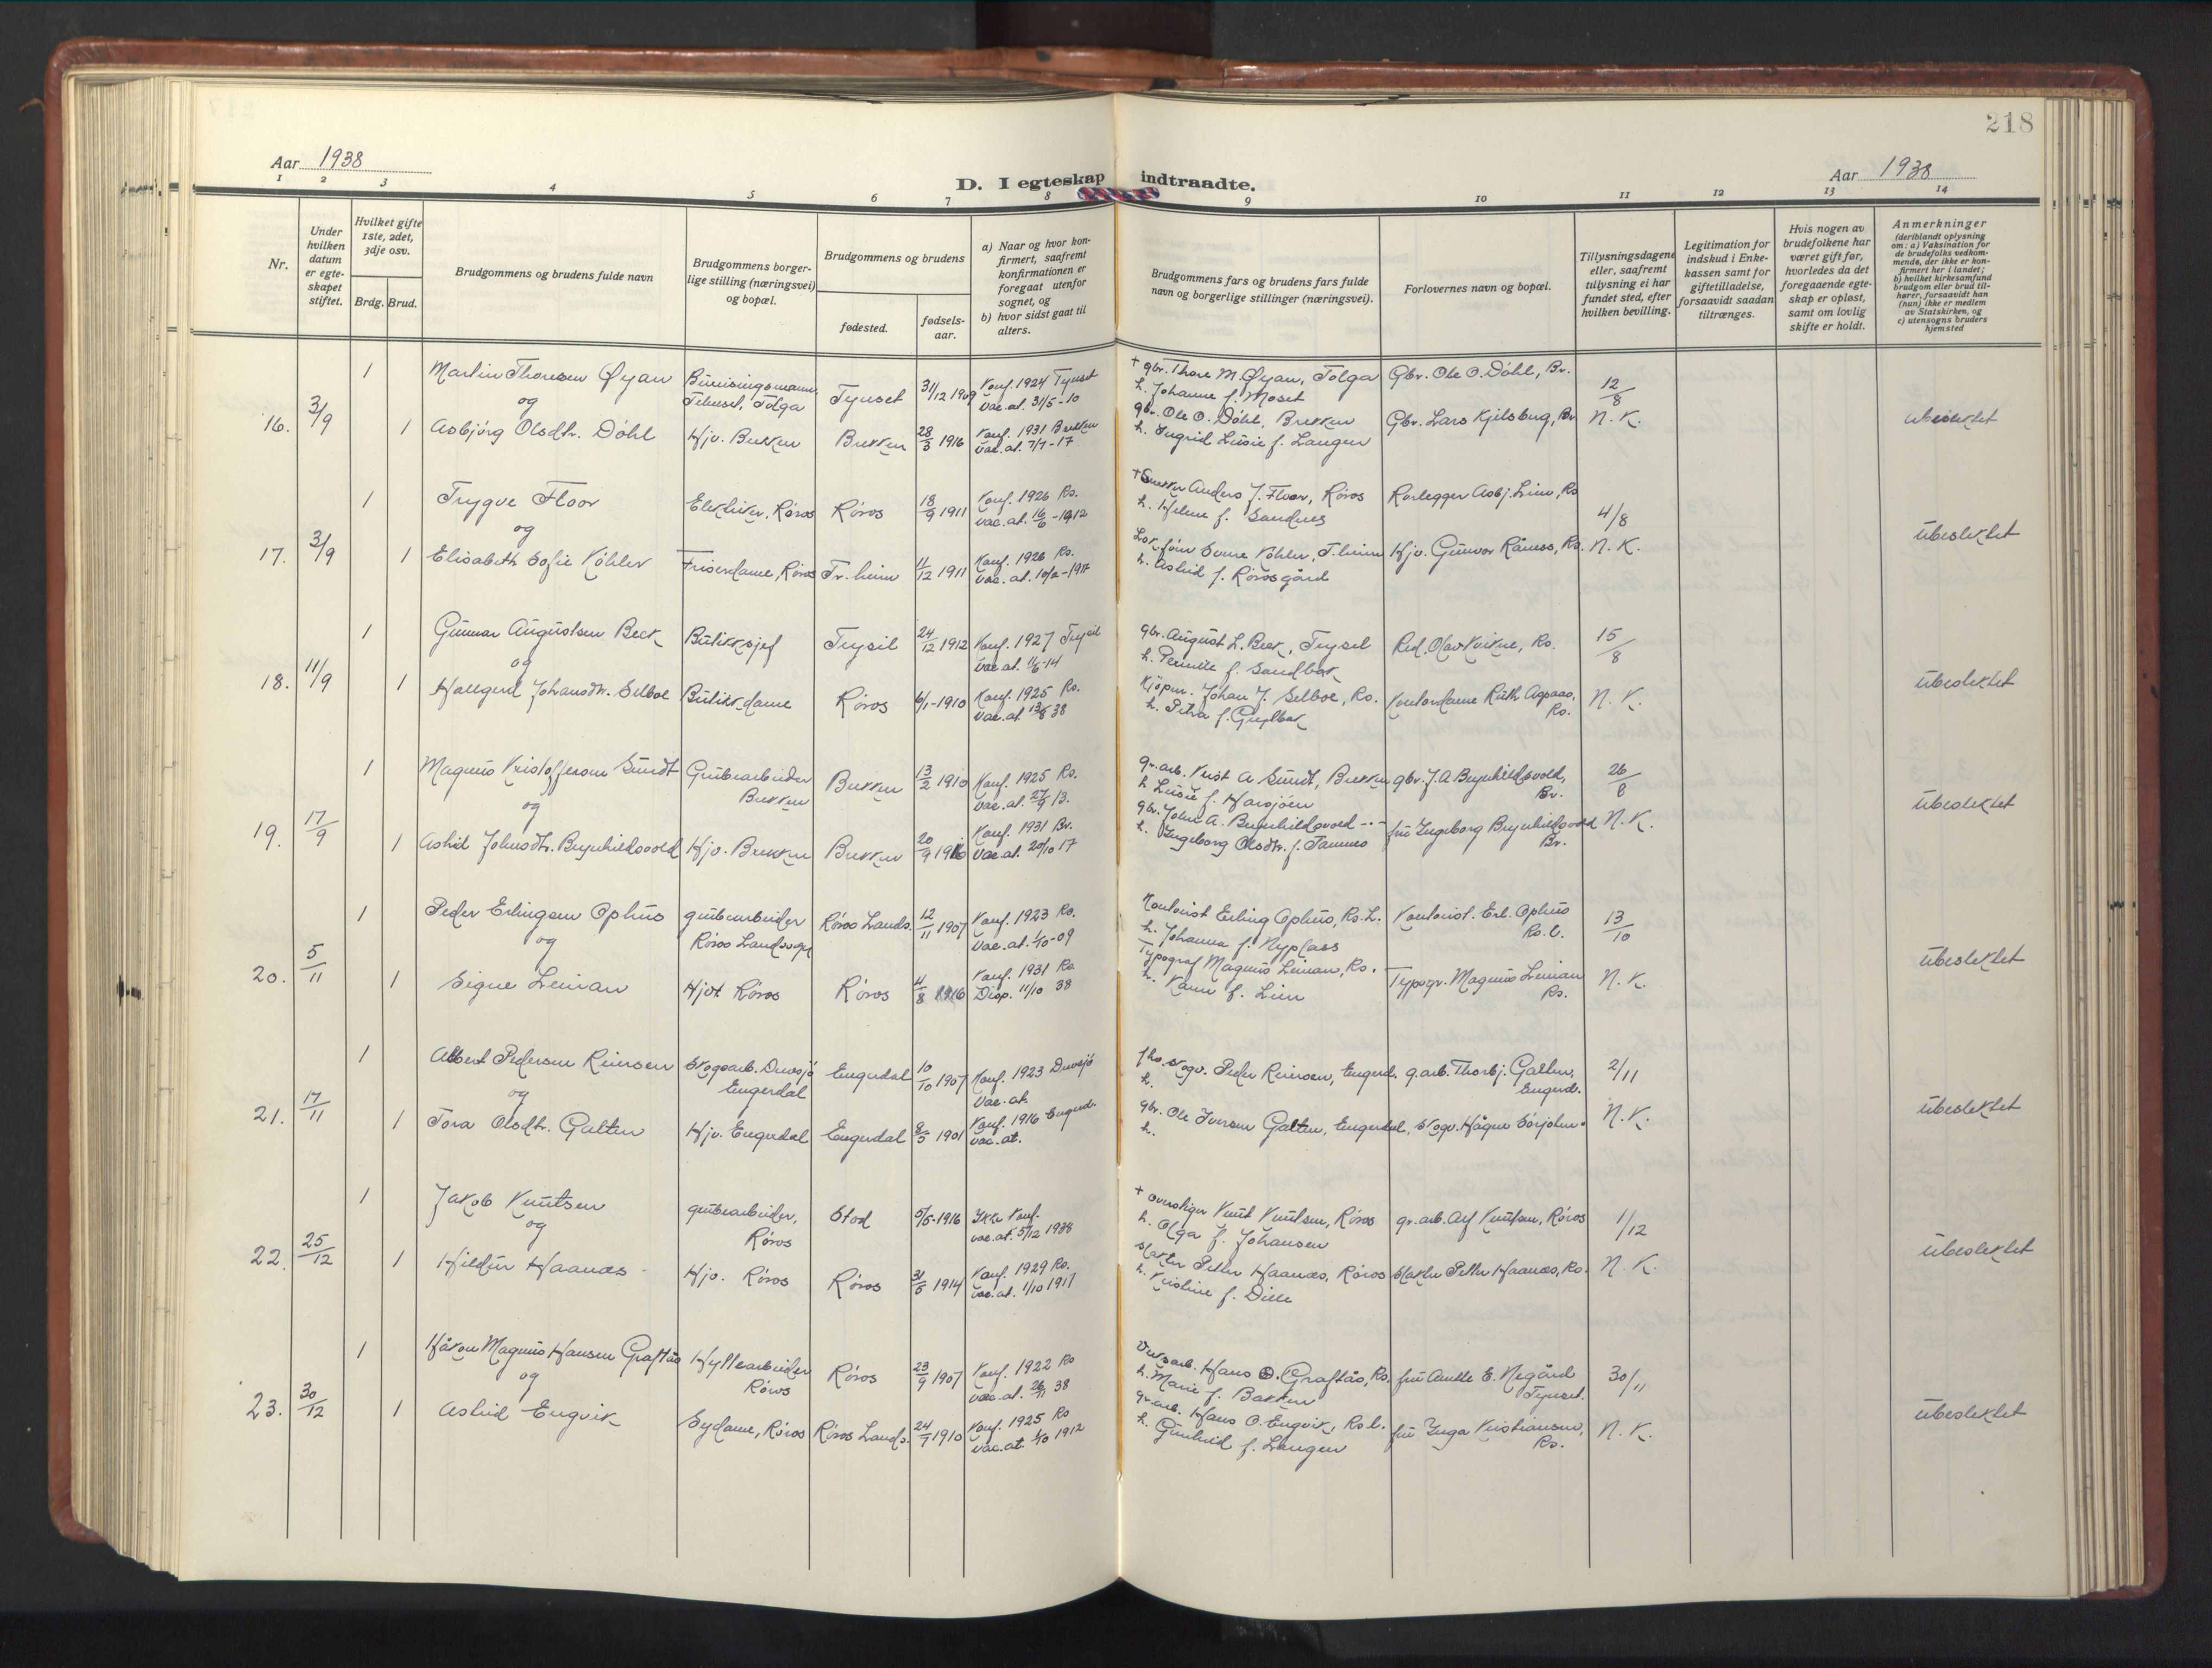 218
Aar 1938
D. I egteskap indtraadte.
Aar 1938
1 2 3 4 5 6 7 8 9 10 11 12 13 14
Nr.
Under hvilken datum er egte-skapet stiftet.
Hvilket gifte 1ste, 2det, 3dje osv.
Brdg. Brud.
Brudgommens og brudens fulde navn
Brudgommens borger-lige stilling (næringsvei) og bopæl.
Brudgommens og brudens
fødested.
fødsels-aar.
a) Naar og hvor kon-firmert, saafremt konfirmationen er foregaat utenfor sognet, og
b) hvor sidst gaat til alters.
Brudgommens fars og brudens fars fulde navn og borgerlige stillinger (næringsvei).
Forlovernes navn og bopæl.
Tillysningsdagene eller, saafremt tillysning ei har fundet sted, efter hvilken bevilling.
Legitimation for indskud i Enke-kassen samt for giftetilladelse, forsaavidt saadan tiltrænges.
Hvis nogen av brudefolkene har været gift før, hvorledes da det foregaaende egte-skap er opløst, samt om lovlig skifte er holdt.
Anmerkninger
(deriblandt oplysning om: a) Vaksination for de brudefolks vedkom-mende, der ikke er kon-firmert her i landet; b) hvilket kirkesamfund brudgom eller brud til-hører, forsaavidt han (hun) ikke er medlem av Statskirken, og c) utensogns bruders hjemsted
16. 3/9
1 Martin Thoresen Øyan Tolga Tynset 31/12 1909 Konf. 1924 Tynset vac.at. 31/5-10
og
1 Asbjörg Olsdtr. Döhl Hjv. Brekken Brekken 28/3 1916 Konf. 1931 Brekken vac.at. 7/7-17
+ gbr. Thore M. Øyan, Tolga
h. Johanne f. Moset
gbr. Ole O. Döhl, Brekken
h. Ingrid Lusie f. Langen
Gbr. Ole O. Döhl, Br.
Gbr. Lars Kjelsberg, Br
12/8
N. K.
ubeslektet
17. 3/9
1 Trygve Floor Elektriker, Røros Røros 18/9 1911 Konf. 1926 Rø. vac.at. 16/6-1912
og
1 Elisabeth Sofie Köhler Friserdame, Røros Tr.heim 11/12 1911 Konf. 1926 Rø.
+ Snekker Anders J. Floor, Røros
h. Helene f. Sandnes
Sverre Köhler, T.heim
h. Astrid f. Rörosgård
Rørlegger Asbj. Lien, Rø
Hjv. Gunvor Råness, Rø.
4/8
N. K.
ubeslektet
18. 11/9
1 Gunnar Augustsen Beck Butikksjef Trysil 24/12 1912 Konf. 1927 Trysil vac.at. 11/6-14
og
1 Hallgerd Johansdtr. Selboe Butikkdame Røros 6/1-1910 Konf. 1925 Rø. vac.at. 13/8 38
gbr. August L. Beck, Trysil
h. Pernille f. Sandbak
Kjöpm. Johan J. Selboe, Rø.
h. Petra f. Gullbak
Red. Olav Kvikne, Rø.
Kontordame Ruth Aspaas, Rø.
15/8
N. K.
ubeslektet
19. 17/9
1 Magnus Kristoffersen Sundt Grubearbeider Brekken Brekken 13/2 1910 Konf. 1925 Rø. vac.at. 27/9 13.
og
1 Astrid Johnsdtr. Brynhildsvold Hjv. Brekken Brekken 20/9 1916 Konf. 1931 Br. vac.at. 20/10 17
gr.arb. Krist A. Sundt, Brekken
h. Lusie f. Harsjöen
gbr. John A. Brynhildsvold -"-
h. Ingeborg Olsdtr. f. Tamnes
gbr. J. A Brynhildsvold, Br.
fru Ingeborg Brynhildsvold Br.
26/8
N. K.
ubeslektet
20. 5/11
1 Peder Erlingsen Ophus grubearbeider Røros Landsogn Røros Lands. 12/11 1907 Konf. 1923 Rø. vac.at. 1/10-09
og
1 Signe Leinan Hjv. Røros Røros 4/8 1916 Konf. 1931 Rø Disp. 11/10 38
Kontorist Erling Ophus, Rø. L.
h. Johanna f. Nyplass
Typograf Magnus Leinan, Rø.
h. Karen f. Lien
Kontorist. Erl. Ophus Rø. L.
Typogr. Magnus Leinan Rø.
13/10
N. K.
ubeslektet
21. 17/11
1 Albert Pedersen Reiersen Skogsarb. Drevsjö Engerdal Engerdal 10/10 1907 Konf. 1923 Drevsjö vac.at.
og
1 Tora Olsdtr. Galten Hjv. Engerdal Engerdal 8/5 1901 Konf. 1916 Engerd. vac.at.
skogv. Peder Reiersen, Engerd.
h.
gbr. Ole Iversen Galten, Engerdal,
h.
g.arb. Thorbj. Galten, Engerd.
skogv. Hågen Sörjohn.
2/11
N. K.
ubeslektet
22. 25/12
1 Jakob Knutsen grubearbeider, Røros Stod 5/5-1916 Ikke Konf. vac.at. 5/12 1938
og
1 Hildur Haanæs Hjv. Røros Røros 31/5 1914 Konf. 1929 Rø. vac.at. 1/10 1917
+ overstiger Knut Knutsen, Røros
h. Olga f. Johansen
slakter Petter Haanæs, Røros
h. Kristine f. Dille
gr.arb. Alf Knutsen, Røros
slakter Petter Haanæs, Rø.
1/12
N. K.
ubeslektet
23. 30/12
1 Håkon Magnus Hansen Graftås Hyttearbeider Røros Røros 23/9 1907 Konf. 1922 Rø vac.at. 26/11 38
og
1 Astrid Engvik Sydame, Røros Røros Lands. 24/7 1910 Konf. 1925 Rø vac.at. 1/10 1912
Hans O. Graftås, Rø.
h. Marie f. Bakken
gr.arb. Hans O. Engvik, Rø. L.
h. Gunhild f. Langen
fru Anette E. Negård Tynset.
fru Inga Kristiansen, Rø.
30/11
N. K.
ubeslektet